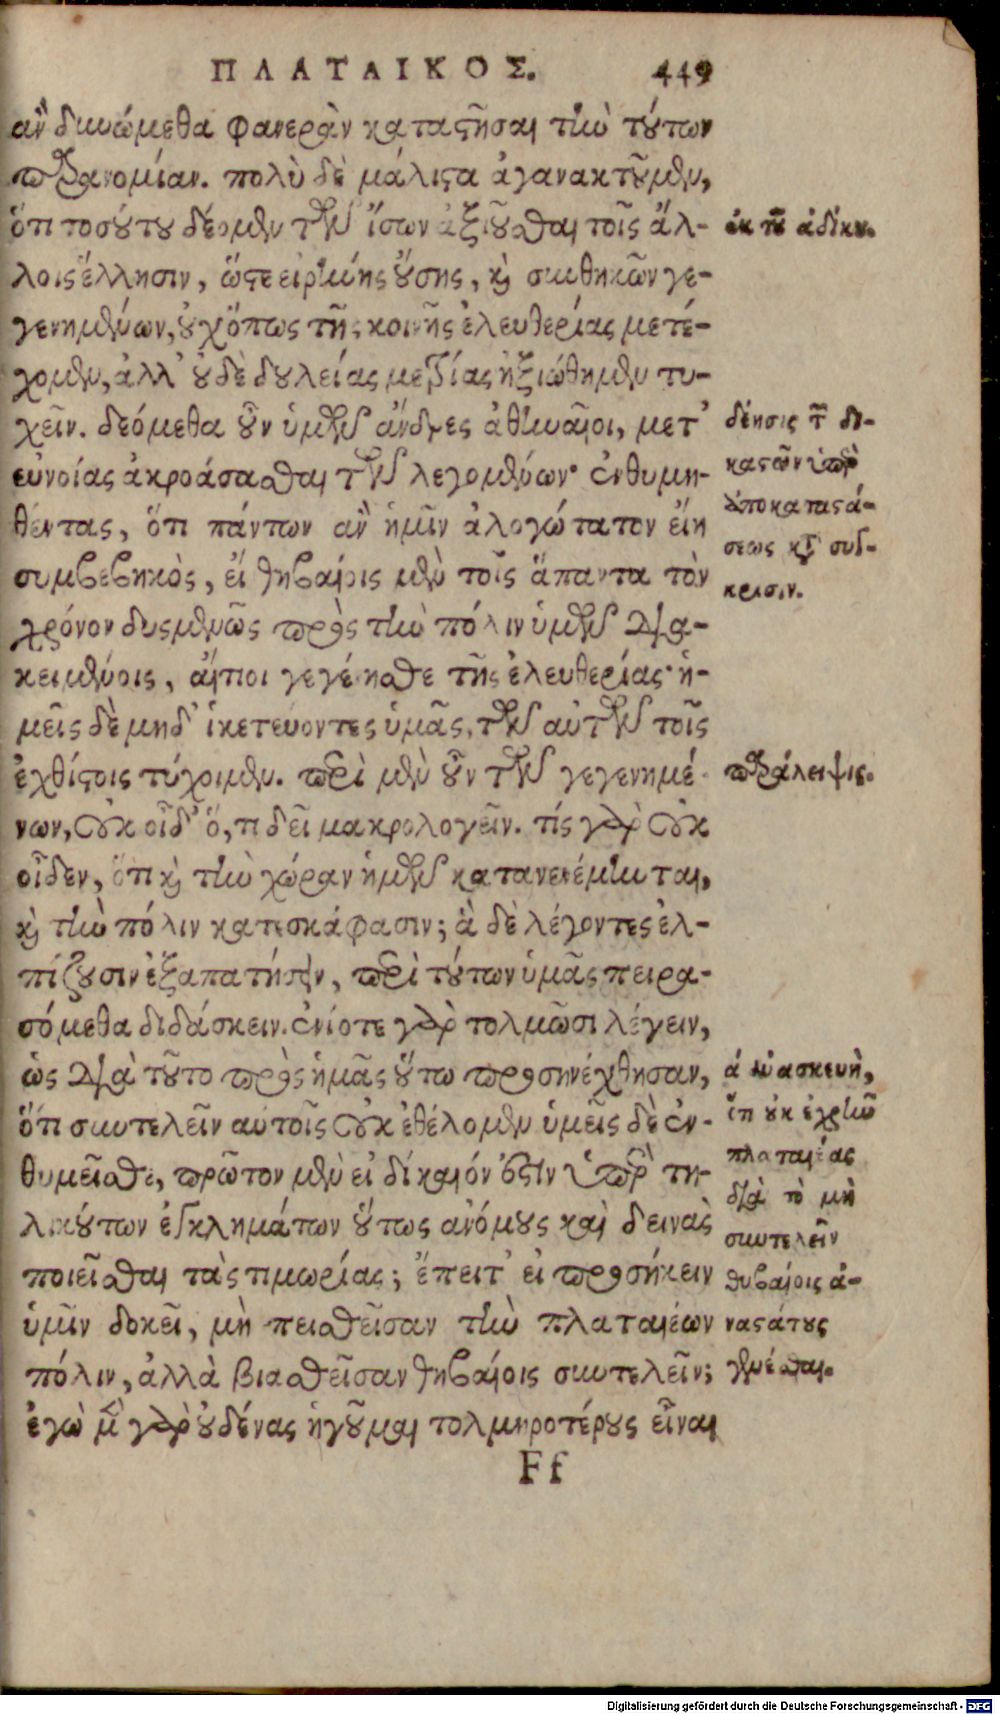 ΠΛΑΤΑΙΚΟΣ. 449
ἂν δυνώμεθα φανερὰν καταστῆσαι τὴν τούτων
παρανομίαν. πολὺ δὲ μάλιστα ἀγανακτοῦμεν,
ὅτι τοσούτου δέομεν τῶν ἴσων ἀξιοῦσθαι τοῖς ἄλ-
λοις ἕλλησιν, ὥστε εἰρήνης οὔσης, καὶ συνθηκῶν γε-
γενημένων, οὐχ ὅπως τῆς κοινῆς ἐλευθερίας μετέ-
χομεν, ἀλλ' οὐδὲ δουλείας μετρίας ἠξιώθημεν τυ-
χεῖν. δεόμεθα οὖν ὑμῶν ἄνδρες ἀθηναῖοι, μετ'
εὐνοίας ἀκροάσασθαι τῶν λεγομένων· ἐνθυμη-
θέντας, ὅτι πάντων ἂν ἡμῖν ἀλογώτατον εἴη
συμβεβηκὸς, εἰ θηβαίοις μὲν τοῖς ἅπαντα τὸν
χρόνον δυσμενῶς πρὸς τὴν πόλιν ὑμῶν δια-
κειμένοις, αἴτιοι γεγένησθε τῆς ἐλευθερίας· ἡ-
μεῖς δὲ μηδ' ἱκετεύοντες ὑμᾶς, τῶν αὐτῶν τοῖς
ἐχθίστοις τύχοιμεν. περὶ μὲν οὖν τῶν γεγενημέ-
νων, οὐκ οἶδ' ὅ,τι δεῖ μακρολογεῖν. τίς γὰρ οὐκ
οἶδεν, ὅτι καὶ τὴν χώραν ἡμῶν κατανενέμηνται,
καὶ τὴν πόλιν κατεσκάφασιν; ἃ δὲ λέγοντες ἐλ-
πίζουσιν ἐξαπατήσειν, περὶ τούτων ὑμᾶς πειρα-
σόμεθα διδάσκειν. ἐνίοτε γὰρ τολμῶσι λέγειν,
ὡς διὰ τοῦτο πρὸς ἡμᾶς οὕτω προσηνέχθησαν,
ὅτι συντελεῖν αὐτοῖς οὐκ ἐθέλομεν ὑμεῖς δὲ ἐν-
θυμεῖσθε, πρῶτον μὲν εἰ δίκαιόν ἐστιν ὑπὲρ τη-
λικούτων ἐγκλημάτων οὕτως ἀνόμους καὶ δεινὰς
ποιεῖσθαι τὰς τιμωρίας; ἔπειτ' εἰ προσήκειν
ὑμῖν δοκεῖ, μὴ πεισθεῖσαν τὴν πλαταιέων
πόλιν, ἀλλὰ βιασθεῖσαν θηβαίοις συντελεῖν;
ἐγὼ μὲν γὰρ οὐδένας ἡγοῦμαι τολμηροτέρους εἶναι
Ff
ἐκ τοῦ ἀδίκου.
δέησις τῶν δι-
καστῶν ὑπὲρ
ἀποκαταστά-
σεως κατὰ σύγ-
κρισιν.
παράλειψις.
ἀνασκευὴ,
ὅτι οὐκ ἐχρῆν
πλαταιέας
διὰ τὸ μὴ
συντελεῖν
θηβαίοις ἀ-
ναστάτους
γενέσθαι.
Digitalisierung gefördert durch die Deutsche Forschungsgemeinschaft - DFG